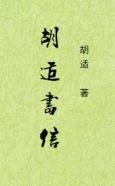 胡适書信
胡适 著